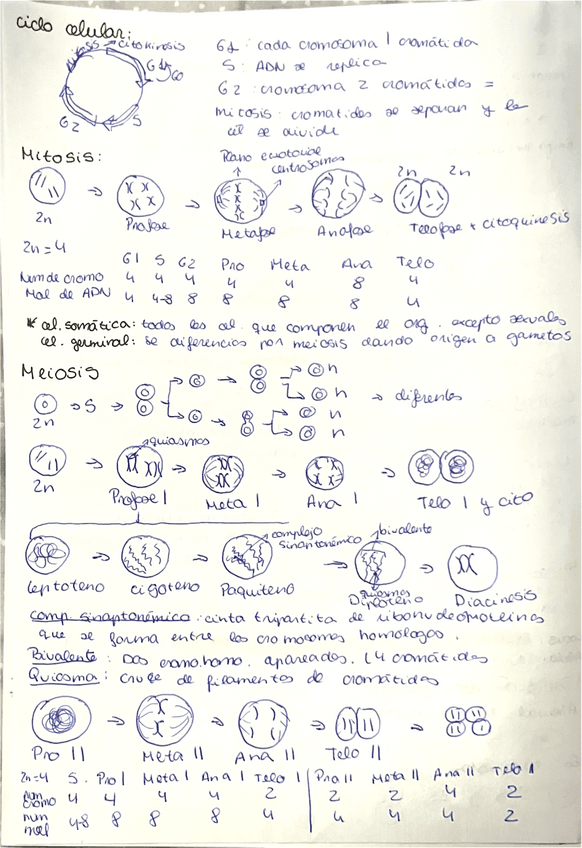 ciclo celular:
S → citokinesis
G1
G0
G2
S
G1: cada cromosoma 1 cromátida
S: ADN se replica
G2: cromosoma 2 cromátidas =
Mitosis: cromátidas se separan y la
cél se divide
Mitosis:
Plano ecuatorial
centrosomas
2n 2n
2n
Profase
Metafase
Anafase
Telofase + citoquinesis
2n=4
G1 S G2 Pro Meta Ana Telo
Num de cromo 4 4 4 4 4 8 4
Mol de ADN 4 4-8 8 8 8 8 4
* cel. somática: todas las cel. que componen el org. excepto sexuales
cel. germinal: se diferencias por meiosis dando origen a gametos
Meiosis
2n → S →
n
n → diferentes
n
n
quiasmos
2n
Profase I Meta I Ana I Telo I y cito
complejo
sinaptonémico
bivalente
quiasmas
Leptoteno cigoteno Paquiteno Diploteno Diacinesis
comp sinaptonémico: cinta tripartita de ribonucleoproteinas
que se forma entre los cromosomas homólogos.
Bivalente: Dos cromo.homo. apareados. (4 cromátidas
Quiosma: cruce de filamentos de cromátidas
Pro II Meta II Ana II Telo II
2n=4 S. Pro I Meta I Ana I Telo I | Pro II Meta II Ana II Telo II
num cromo 4 4 4 4 2 | 2 2 4 2
num mol 4-8 8 8 8 4 | 4 4 4 2